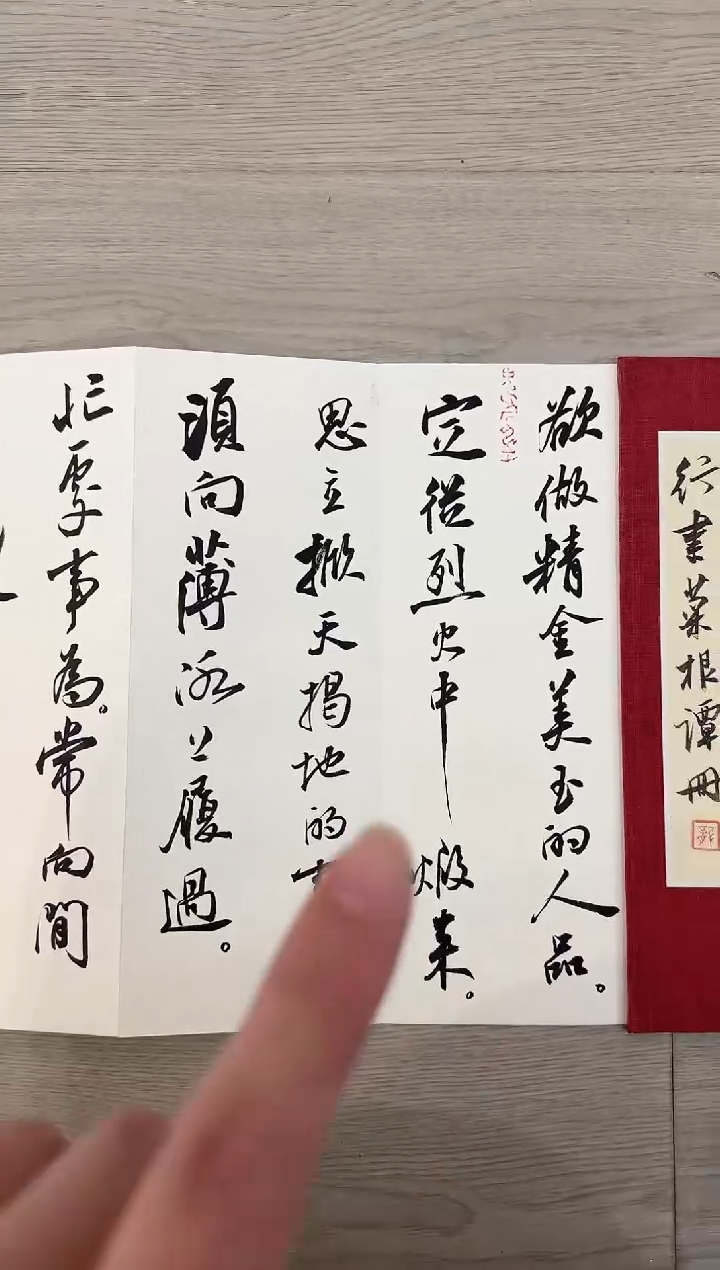 欲做精金美玉的人品。
定從烈火中煅来。
思立掀天揭地的
須向薄冰上履過。
忙處事為。常向閒
行書菜根譚冊